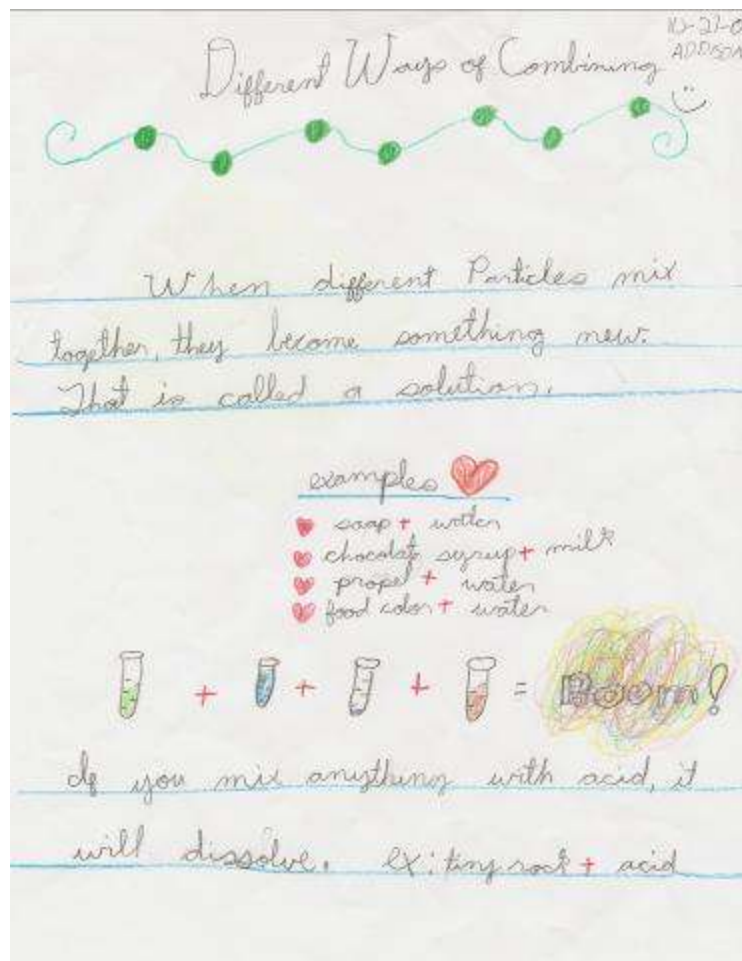 10-27-0
ADDISON
Different Ways of Combining
When different Particles mix
together, they become something new.
That is called a solution.
examples
soap + water
chocolate syrup + milk
propel + water
food color + water
+ + + = Boom!
If you mix anything with acid, it
will dissolve. ex: tiny rock + acid